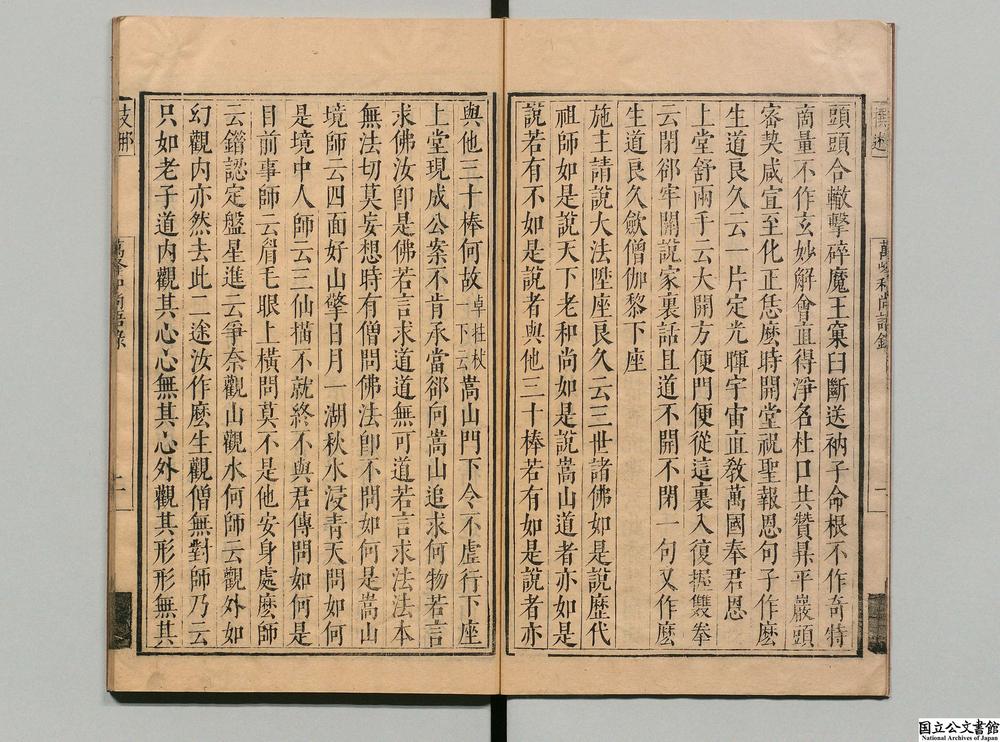 頭頭合轍擊碎魔王窠臼斷送衲子命根不作奇特
商量不作玄妙解會直得淨名杜口共贊昇平巖頭
密契咸宣至化正恁麼時開堂祝聖報恩句子作麼
生道良久云一片定光暉宇宙直敎萬國奉君恩
上堂舒兩手云大開方便門便從這裏入復握雙拳
云閉郤牢關說家裏話且道不開不閉一句又作麼
生道良久歛僧伽黎下座
施主請說大法陞座良久云三世諸佛如是說歷代
祖師如是說天下老和尚如是說嵩山道者亦如是
說若有不如是說者與他三十棒若有如是說者亦
與他三十棒何故卓拄杖一下云嵩山門下令不虛行下座
上堂現成公案不肯承當郤向嵩山追求何物若言
求佛汝卽是佛若言求道道無可道若言求法法本
無法切莫妄想時有僧問佛法卽不問如何是嵩山
境師云四面好山擎日月一湖秋水浸青天問如何
是境中人師云三仙橫不就終不與君傳問如何是
目前事師云眉毛眼上橫問莫不是他安身處麼師
云錯認定盤星進云爭奈觀山觀水何師云觀外如
幻觀內亦然去此二途汝作麼生觀僧無對師乃云
只如老子道內觀其心心無其心外觀其形形無其
萬峰和尚語錄
一
萬峰和尚語錄
二
国立公文書館
National Archives of Japan